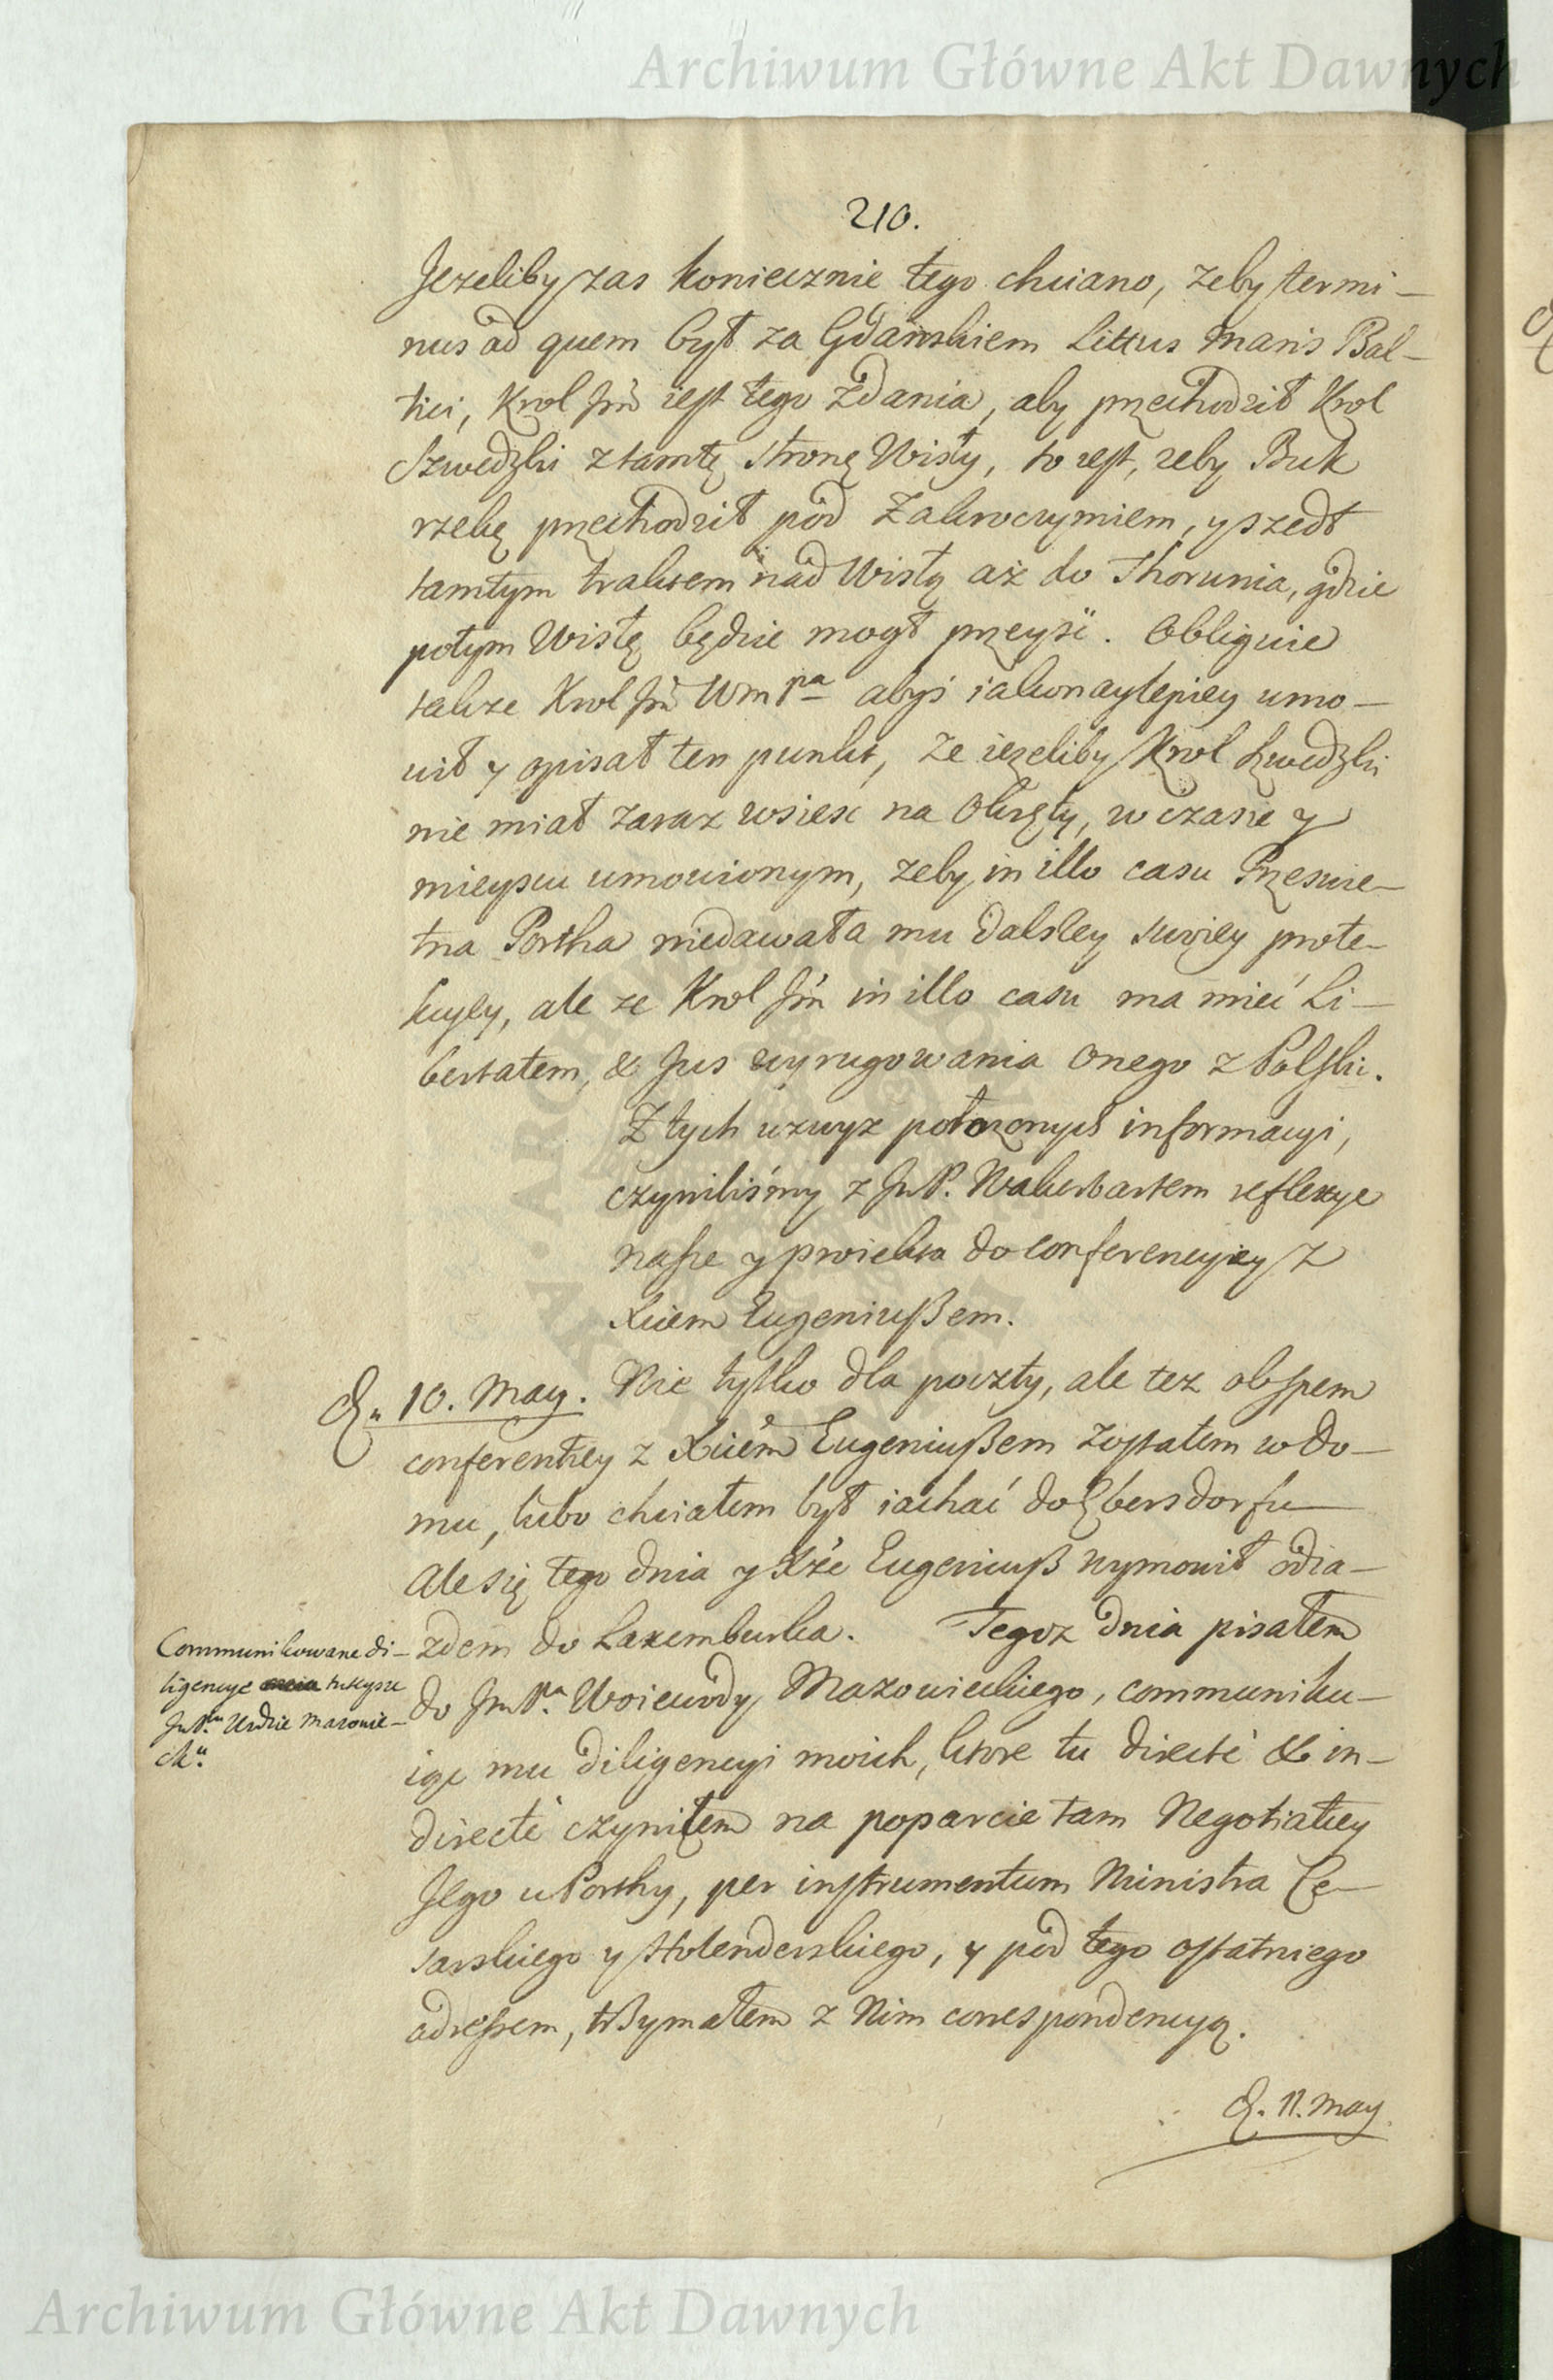 Archiwum Główne Akt Dawnych
210.
Jezeliby zas koniecznie tego chciano, zeby termi-
nus ad quem był za Gdanskiem Littus Maris Bal-
tici, Krol Jm̃ iest tego zdania, aby przechodził Krol
Szwedzki z tamtę stronę Wisły, to iest, zeby Buk
rzekę przechodził pod Zakroczymiem, y szedł
tamtym traktem nad Wisłą aż do Thorunia, gdzie
potym Wisłę będzie mogł przeyść. Obliguie
takze Krol Jm̃ Wmpa abyś iaknaylepiey umo-
wił y opisał ten punkt, ze iezeliby Krol Szwedzki
nie miał zaraz wsiesc na Okręty, w czasie y
mieyscu umowionym, zeby in illo casu Przeswie-
tna Portha niedawała mu dalszey swoiey prote-
kcyey, ale ze Krol Jm̃ in illo casu ma mieć Li-
bertatem, & Jus wyrugowania onego z Polski.
Z tych wzwyz połozonych informacyi,
czyniliśmy z JmP. Wakerbartem reflexye
nasze y proiekta do conferencyiey z
Xciem Eugeniuszem.
D. 10. May. Nie tylko dla poczty, ale tez obspem
conferentiey z Xciem Eugeniuszem zostałem w do-
mu, lubo chciałem był iachać do Ebersdorfu
Ale się tego dnia y Xże Eugeniusz wymowił odia-
zdem do Laxemburka. Tegoz dnia pisałem
do JmPa. Woiewody Mazowieckiego, communiku-
iąc mu diligencyi moich, ktore tu directè & in-
directè czyniłem na poparcie tam Negotiatiey
Jego u Porthy, per instrumentum Ministra Ce-
sarskiego y Holenderskiego, y pod tego ostatniego
adressem, trzymałem z Nim correspondencyą.
Communikowane di-
ligencye tuteysze
JmP. Wdzie Mazowie-
cku.
D. 11. May.
Archiwum Główne Akt Dawnych